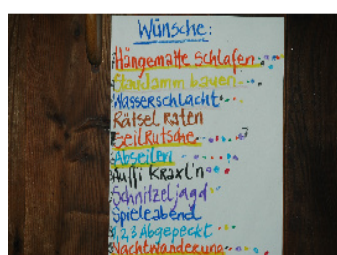 Wünsche:
Hängematte schlafen
Staudamm bauen
Wasserschlacht
Rätsel raten
Seilrutsche
Abseilen
Auffi kraxl'n
Schnitzeljagd
Spieleabend
1,2,3 Abgepeckt
Nachtwanderung